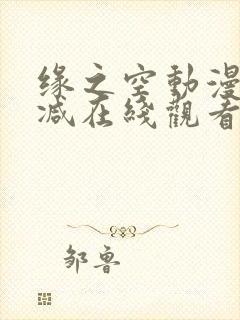 缘之空動漫
减在綫觀看
邹鲁